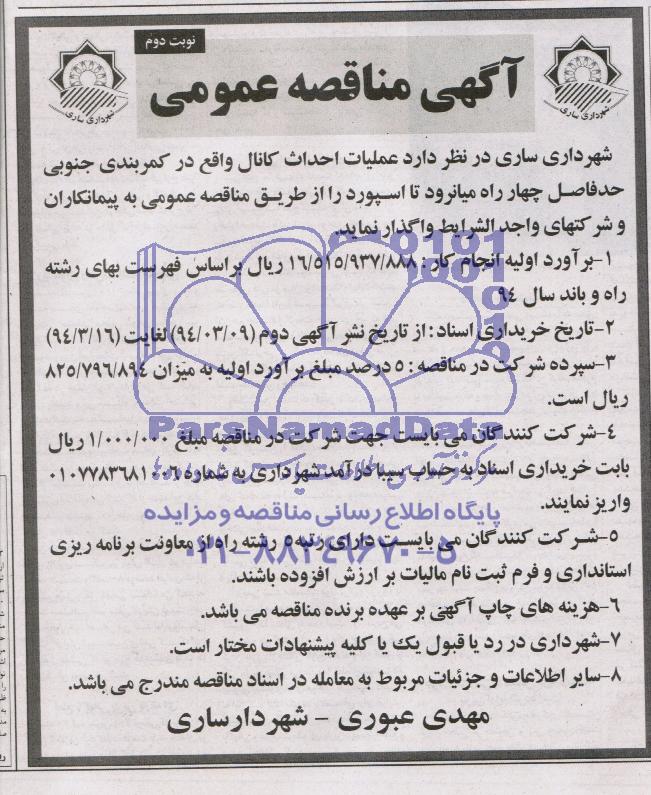 نوبت دوم
آگهی مناقصه عمومی
شهرداری ساری
شهرداری ساری
شهرداری ساری در نظر دارد عملیات احداث کانال واقع در کمربندی جنوبی
حدفاصل چهار راه میانرود تا اسپورد را از طریق مناقصه عمومی به پیمانکاران
و شرکتهای واجد الشرایط واگذار نماید.
۱-برآورد اولیه انجام کار: ۱۶/۵۱۵/۹۳۷/۸۸۸ ریال براساس فهرست بهای رشته
راه و باند سال ۹۴
۲-تاریخ خریداری اسناد: از تاریخ نشر آگهی دوم (۹۴/۰۳/۰۹) لغایت (۹۴/۳/۱۶)
۳-سپرده شرکت در مناقصه: ۵ درصد مبلغ برآورد اولیه به میزان ۸۲۵/۷۹۶/۸۹۴
ریال است.
ParsNamadData
۴-شرکت کنندگان می بایست جهت شرکت در مناقصه مبلغ ۱/۰۰۰/۰۰۰ ریال
بابت خریداری اسناد به حساب سیبا درآمد شهرداری به شماره ۰۱۰۷۷۸۳۶۸۱۰۰۶
واریز نمایند.
پایگاه اطلاع رسانی مناقصه و مزایده
۵-شرکت کنندگان می بایست دارای رتبه۵ رشته راه از معاونت برنامه ریزی
۰۲۱-۸۸۳۴۹۶۷۰-۵
استانداری و فرم ثبت نام مالیات بر ارزش افزوده باشند.
۶-هزینه های چاپ آگهی بر عهده برنده مناقصه می باشد.
۷-شهرداری در رد یا قبول یک یا کلیه پیشنهادات مختار است.
۸-سایر اطلاعات و جزئیات مربوط به معامله در اسناد مناقصه مندرج می باشد.
مهدی عبوری - شهردارساری